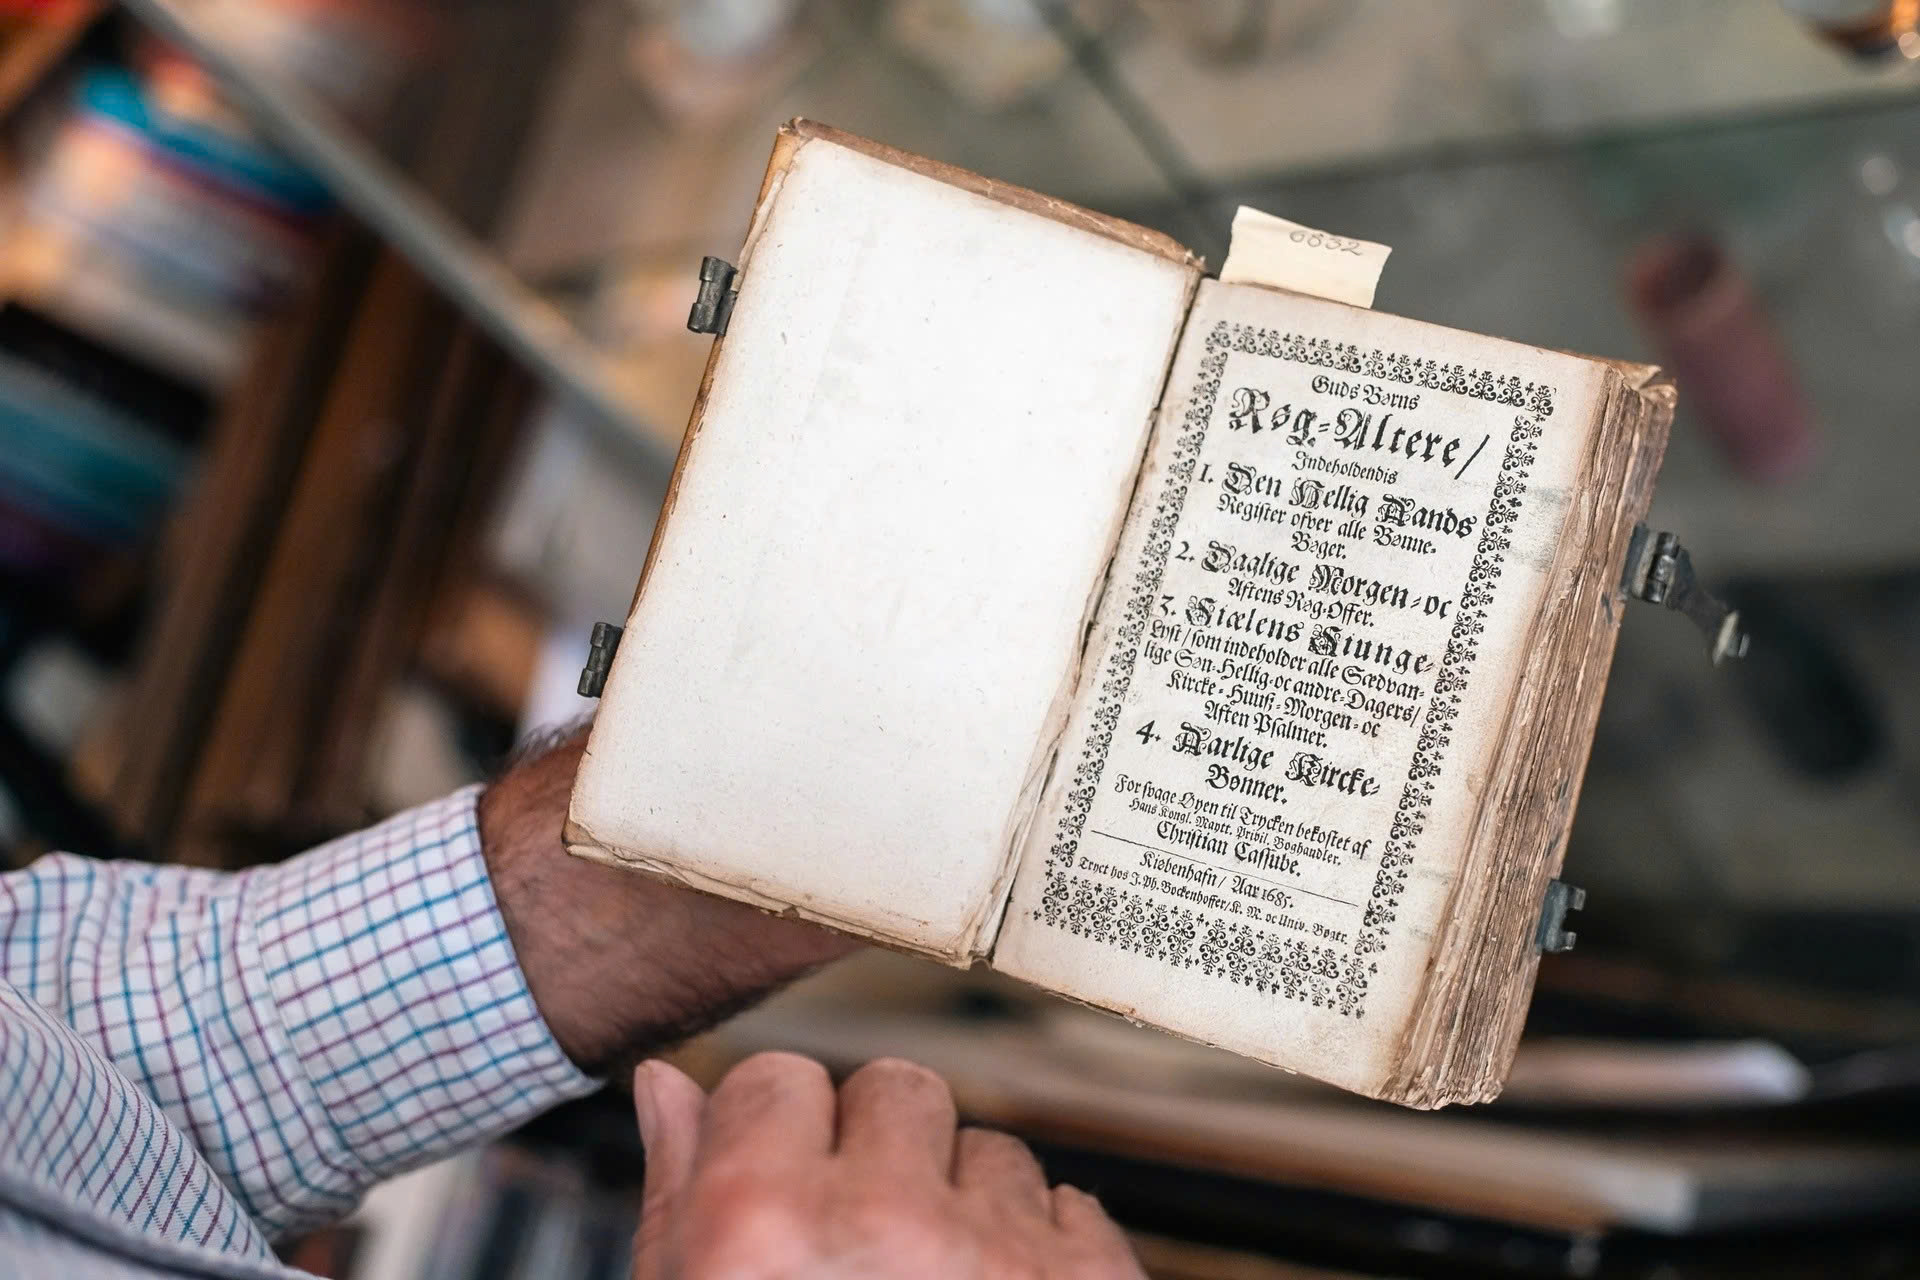 6832
Guds Børns
Røg-Altere/
Indeholdendis
1. Den Hellig Aands
Register ofver alle Bønne-
Bøger.
2. Daglige Morgen- oc
Aftens Røg-Offer.
3. Siælens Siunge-
Lyst/ som indeholder alle Sædvan-
lige Søn- Hellig- oc andre-Dagers/
Kircke- Huuß- Morgen- oc
Aften Psalmer.
4. Aarlige Kircke-
Bønner.
For svage Øyen til Trycken bekostet af
Hans Kongl. Maytt. Privil. Boghandler.
Christian Cassube.
Kiøbenhafn/ Aar 1685.
Tryct hos J. Ph. Bockenhoffer/ K. M. oc Univ. Bogtr.